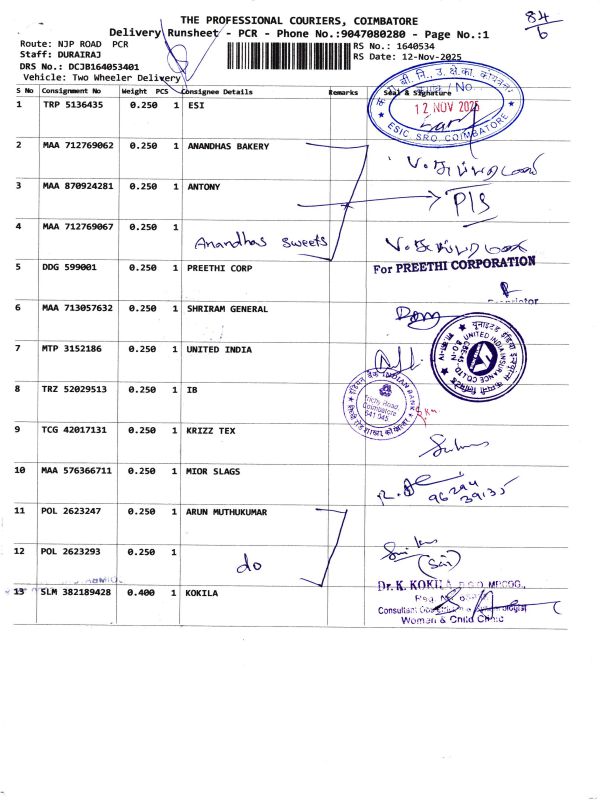 THE PROFESSIONAL COURIERS, COIMBATORE
84/6
Delivery Runsheet - PCR - Phone No.:9047080280 - Page No.:1
Route: NJP ROAD PCR
RS No.: 1640534
Staff: DURAIRAJ
RS Date: 12-Nov-2025
DRS No.: DCJB164053401
Vehicle: Two Wheeler Delivery
S No Consignment No Weight PCS Consignee Details Remarks Seal & Signature
1 TRP 5136435 0.250 1 ESI
12 NOV 2025
ESIC SRO, COIMBATORE
2 MAA 712769062 0.250 1 ANANDHAS BAKERY
3 MAA 870924281 0.250 1 ANTONY
P/S
4 MAA 712769067 0.250 1
Anandhas sweets
5 DDG 599001 0.250 1 PREETHI CORP
For PREETHI CORPORATION
6 MAA 713057632 0.250 1 SHRIRAM GENERAL
7 MTP 3152186 0.250 1 UNITED INDIA
यूनाइटेड इंडिया इन्श्योरेन्स कंपनी लिमिटेड
UNITED INDIA INSURANCE CO LTD
8 TRZ 52029513 0.250 1 IB
इंडियन बैंक INDIAN BANK
Trichy Road,
Coimbatore
641 045
9 TCG 42017131 0.250 1 KRIZZ TEX
10 MAA 576366711 0.250 1 MIOR SLAGS
96294
39135
11 POL 2623247 0.250 1 ARUN MUTHUKUMAR
12 POL 2623293 0.250 1
do
(Sai)
13 SLM 382189428 0.400 1 KOKILA
Dr. K. KOKILA
Consultant
Women & Child Clinic